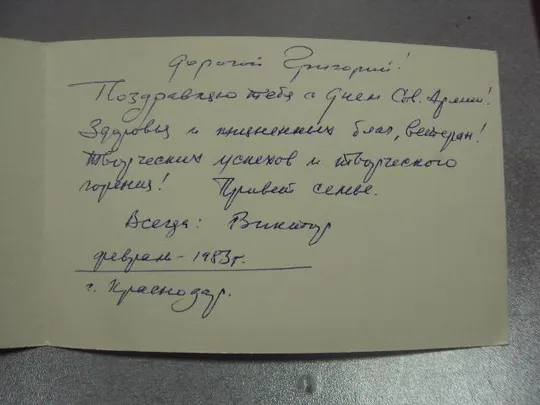 Дорогой Григорий!
Поздравляю тебя с Днем Сов. Армии!
Здоровья и жизненных благ, ветеран!
Творческих успехов и творческого
горения! Привет семье.
Всегда: Виктор
февраль - 1983 г.
г. Краснодар.